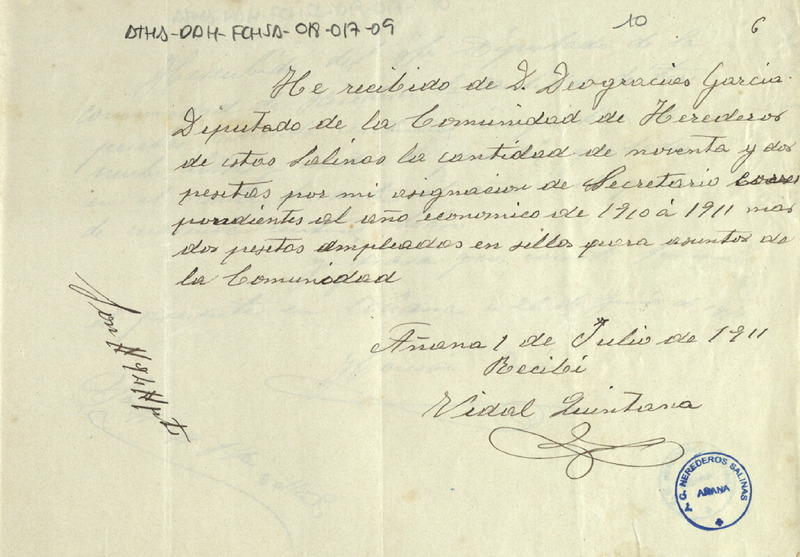 ATHA-DAH-FCHSA-018-017-09
10
6
He recibido de D. Deogracias Garcia.
Diputado de la Comunidad de Herederos
de estas Salinas la cantidad de noventa y dos
pesetas por mi asignacion de Secretario corres
pondientes al año economico de 1910 á 1911 mas
dos pesetas empleadas en sillas para asuntos de
la Comunidad
Añana 1 de Julio de 1911
Recibí
Vidal Quintana
T. G. HEREDEROS SALINAS
AÑANA